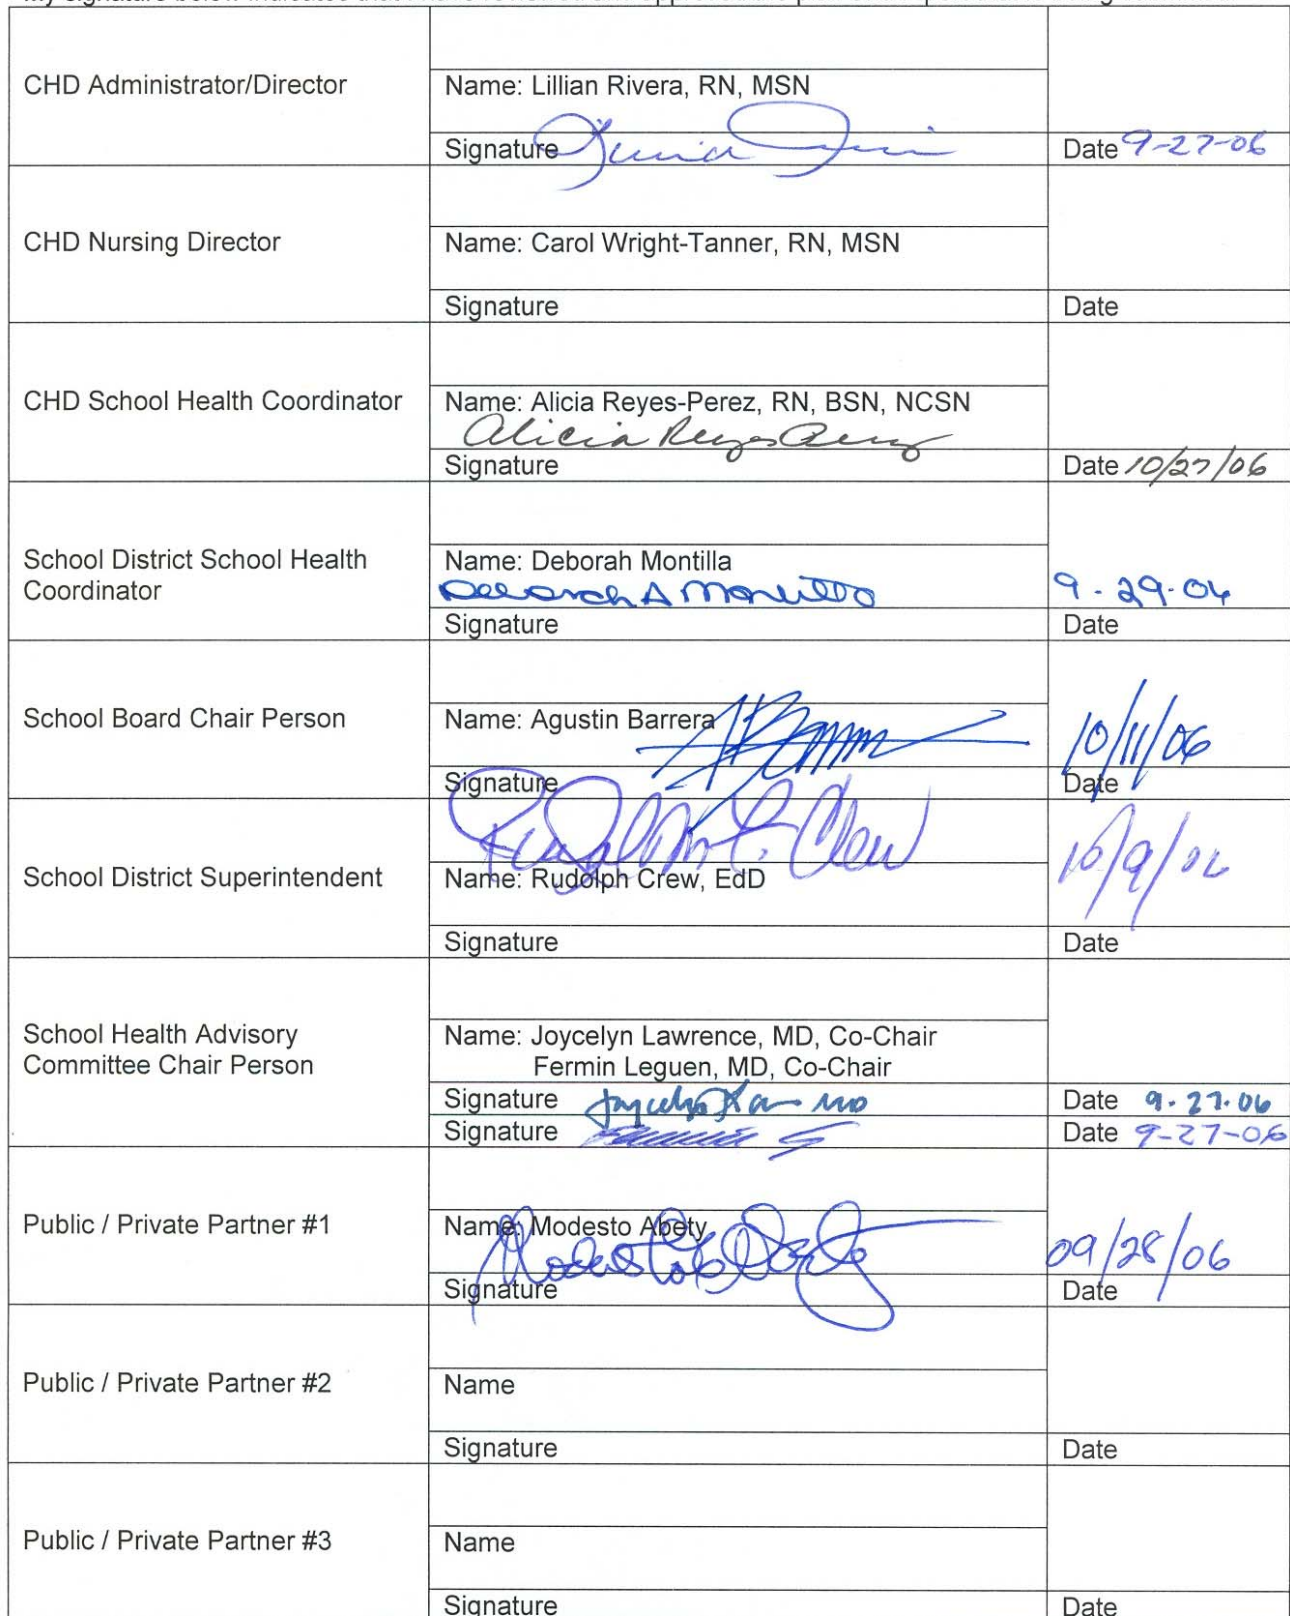 CHD Administrator/Director
Name: Lillian Rivera, RN, MSN
Signature
Date 9-27-06
CHD Nursing Director
Name: Carol Wright-Tanner, RN, MSN
Signature
Date
CHD School Health Coordinator
Name: Alicia Reyes-Perez, RN, BSN, NCSN
Alicia Reyes Perez
Signature
Date 10/27/06
School District School Health
Coordinator
Name: Deborah Montilla
Deborah A Montilla
9-29-06
Signature
Date
School Board Chair Person
Name: Agustin Barrera
10/11/06
Signature
Date
School District Superintendent
Rudolph F. Crew
Name: Rudolph Crew, EdD
10/9/06
Signature
Date
School Health Advisory
Committee Chair Person
Name: Joycelyn Lawrence, MD, Co-Chair
Fermin Leguen, MD, Co-Chair
Signature
Date 9-27-06
Signature
Date 9-27-06
Public / Private Partner #1
Name: Modesto Abety
09/28/06
Signature
Date
Public / Private Partner #2
Name
Signature
Date
Public / Private Partner #3
Name
Signature
Date